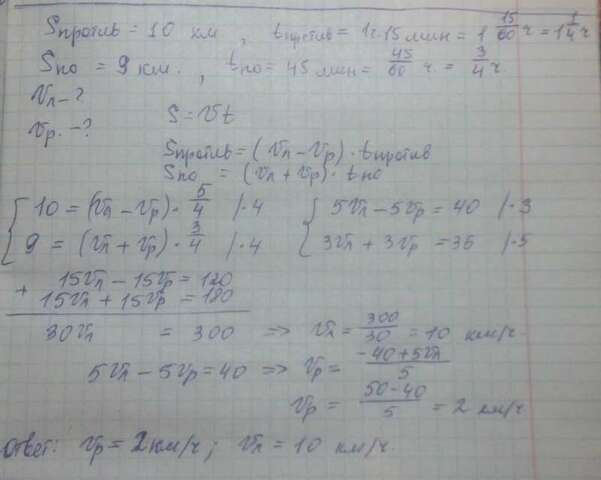 Sпротив = 10 км , tпротив = 1ч.15 мин = 1 15/60 ч = 1 1/4 ч
Sпо = 9 км. , tпо = 45 мин = 45/60 ч. = 3/4 ч.
Vл - ?
Vр. - ?
S = Vt
Sпротив = (Vл - Vр) · tпротив
Sпо = (Vл + Vр) · tпо
{ 10 = (Vл - Vр) · 5/4 | · 4
9 = (Vл + Vр) · 3/4 | · 4
{ 5Vл - 5Vр = 40 | · 3
3Vл + 3Vр = 36 | · 5
+ 15Vл - 15Vр = 120
15Vл + 15Vр = 180
30Vл = 300 => Vл = 300/30 = 10 км/ч.
5Vл - 5Vр = 40 => Vр = -40+5Vл/5
Vр = 50-40/5 = 2 км/ч
Ответ: Vр = 2 км/ч ; Vл = 10 км/ч.